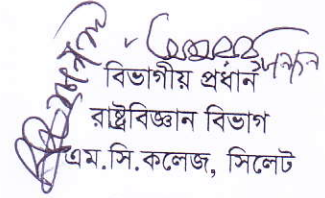 বিভাগীয় প্রধান
রাষ্ট্রবিজ্ঞান বিভাগ
এম.সি.কলেজ, সিলেট